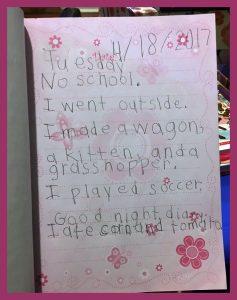 Tuesday 4/18/2017
No school.
I went outside.
I made a wagon,
a kitten, and a
grasshopper.
I played soccer,
Good night, diary
I ate corn and tomato